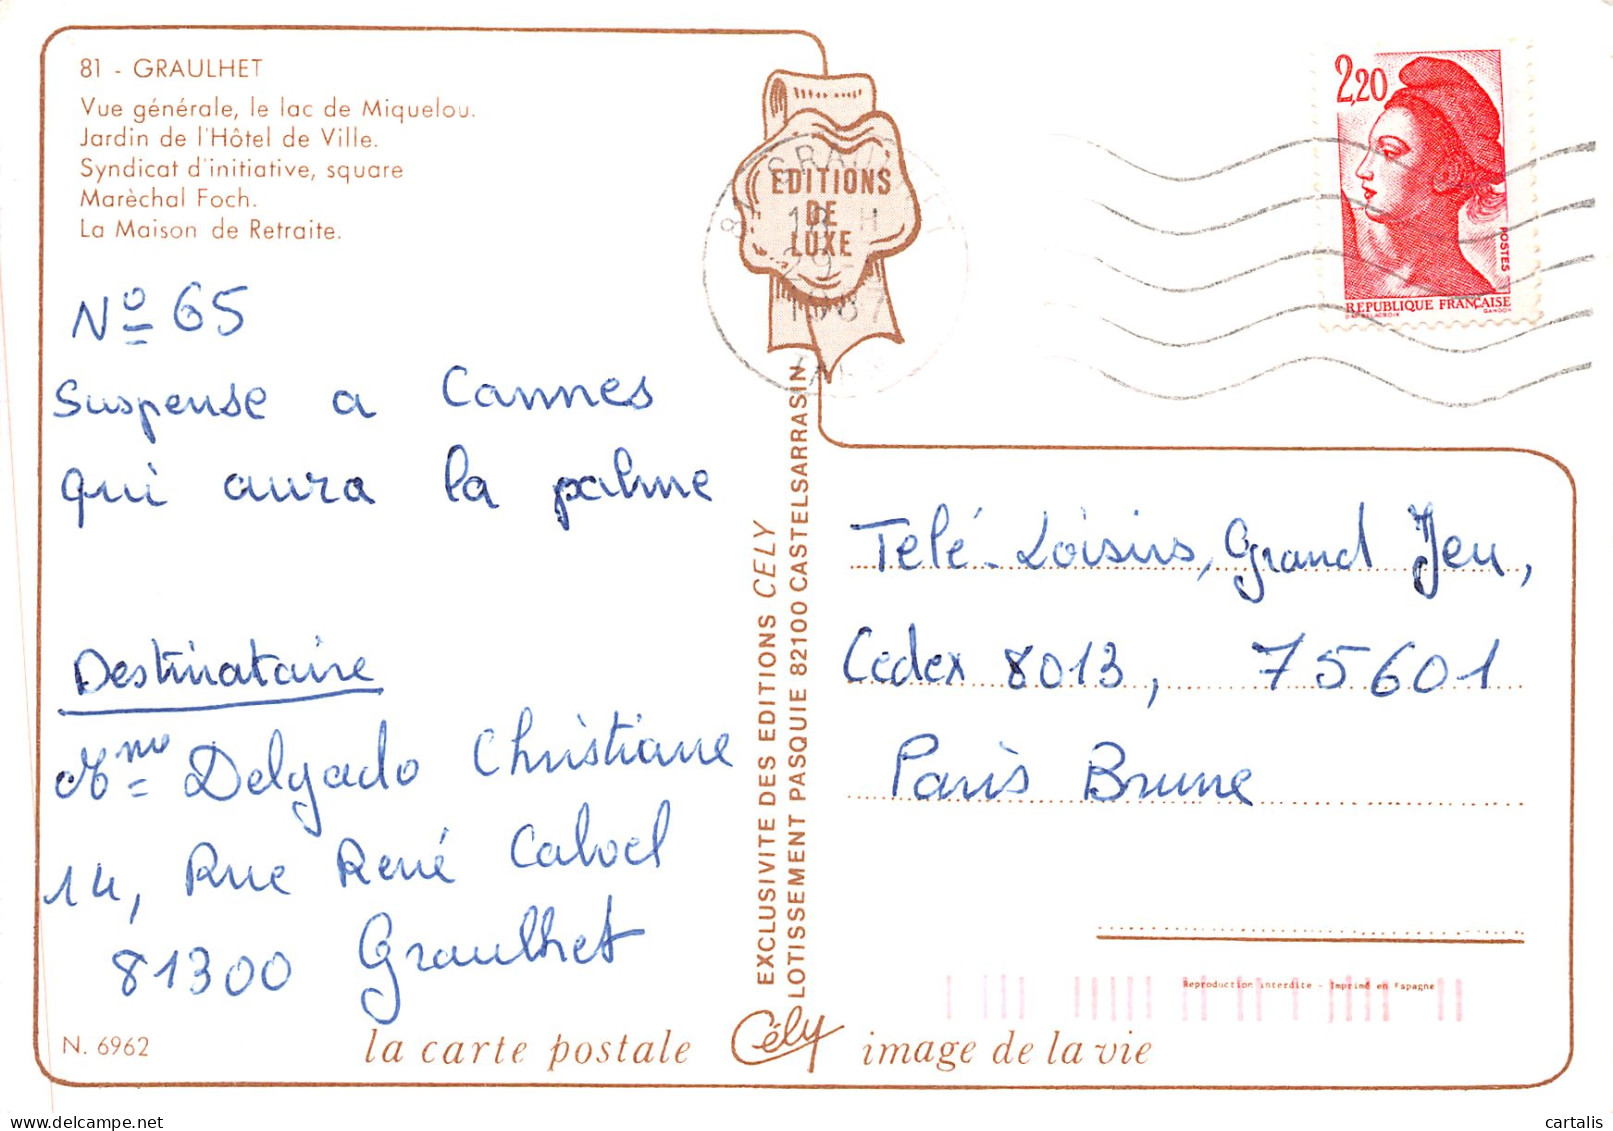 81 - GRAULHET
Vue générale, le lac de Miquelou.
Jardin de l'Hôtel de Ville.
Syndicat d'initiative, square
Marèchal Foch.
La Maison de Retraite.
Nº 65
Suspense a Cannes
qui aura la palme
Destinataire
Mme Delgado Christiane
14, Rue René Calvel
81300 Graulhet
N. 6962
EDITIONS
DE
LUXE
81 GRAULHET
29
1987
TARN
EXCLUSIVITE DES EDITIONS CELY
LOTISSEMENT PASQUIE 82100 CASTELSARRASIN
2,20
POSTES
REPUBLIQUE FRANÇAISE
D'AP. DELACROIX GANDON
Telé-Loisirs, Grand Jeu,
Cedex 8013, 75601
Paris Brune
Reproduction interdite - Imprimé en Espagne
la carte postale Cély image de la vie
https://www.delcampe.net
cartalis